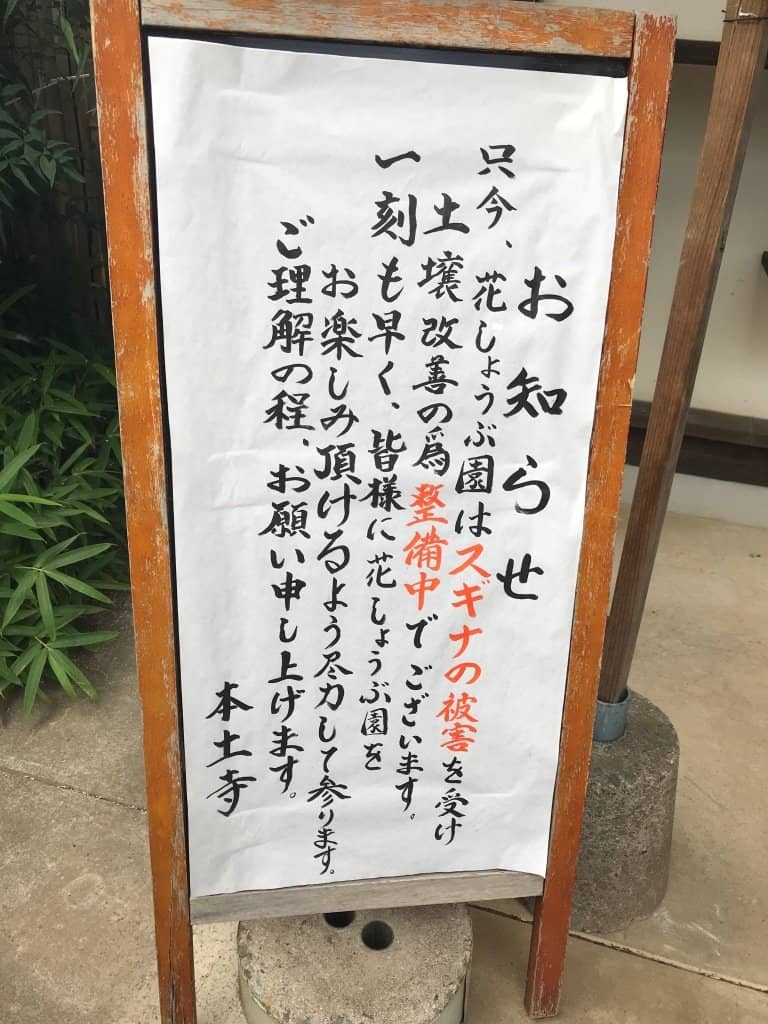 お知らせ
只今、花しょうぶ園はスギナの被害を受け
土壌改善の爲整備中でございます。
一刻も早く、皆様に花しょうぶ園を
お楽しみ頂けるよう尽力して参ります。
ご理解の程、お願い申し上げます。
本土寺